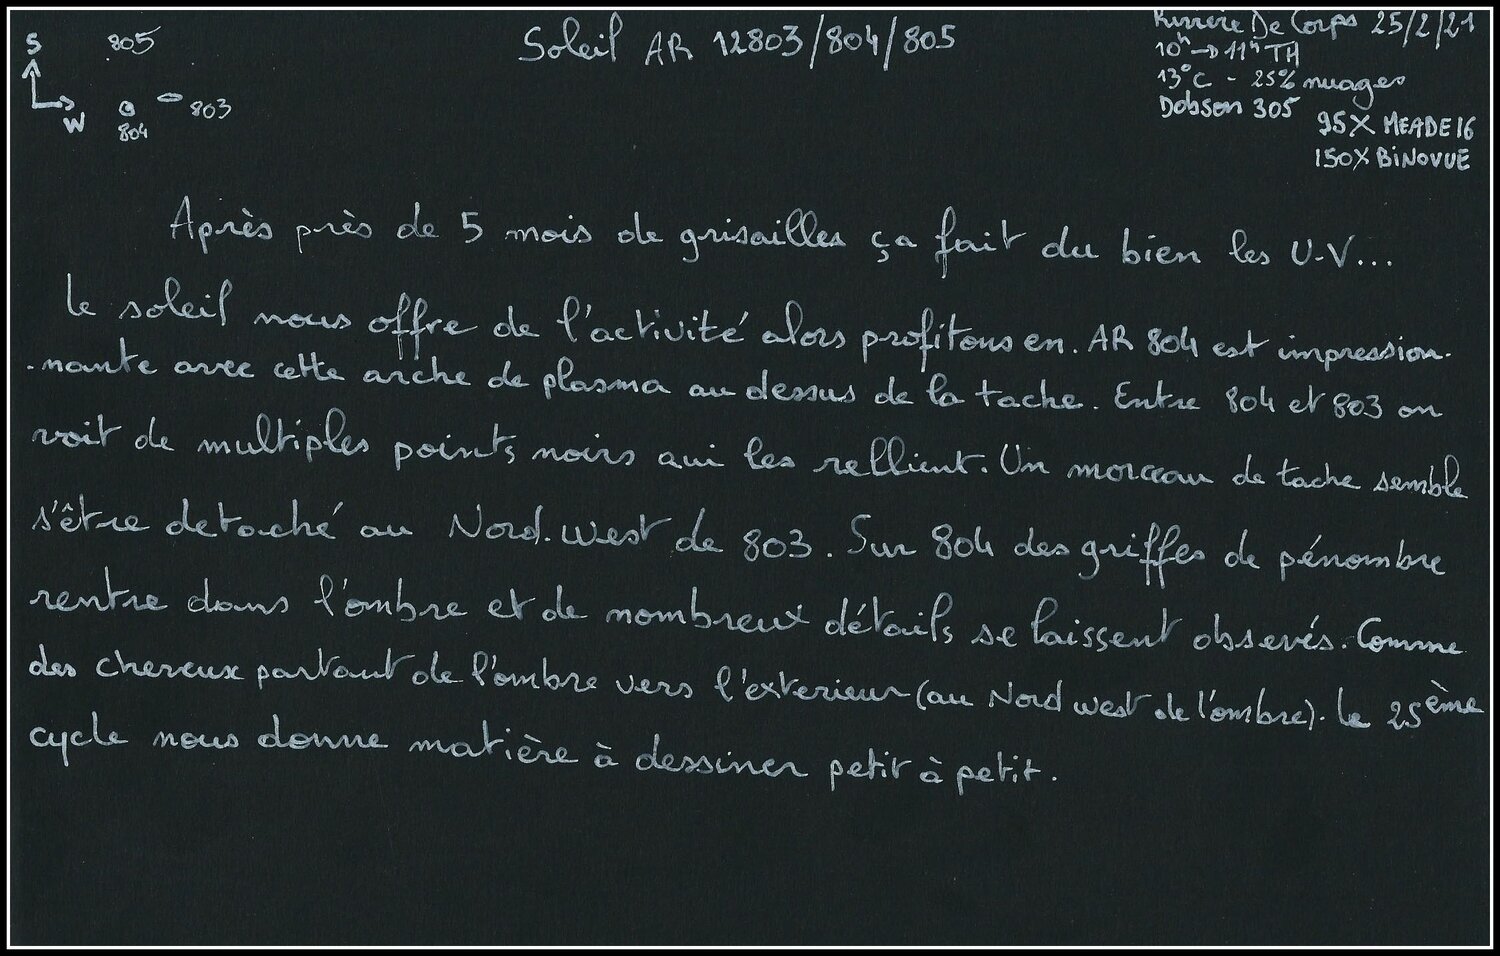 S
805
W
804
803
Soleil AR 12803/804/805
Rivière De Corps 25/2/21
10h -> 11h TH
13°C - 25% nuages
Dobson 305
95X MEADE 16
150X BINOVUE
Après près de 5 mois de grisailles ça fait du bien les U-V...
Le soleil nous offre de l'activité alors profitons en. AR 804 est impression-
-nante avec cette arche de plasma au dessus de la tache. Entre 804 et 803 on
voit de multiples points noirs qui les rellient. Un morceau de tache semble
s'être detaché au Nord.west de 803. Sur 804 des griffes de pénombre
rentre dans l'ombre et de nombreux détails se laissent obsevés. Comme
des cheveux partant de l'ombre vers l'exterieur (au Nord west de l'ombre). Le 25ème
cycle nous donne matière à dessiner petit à petit.